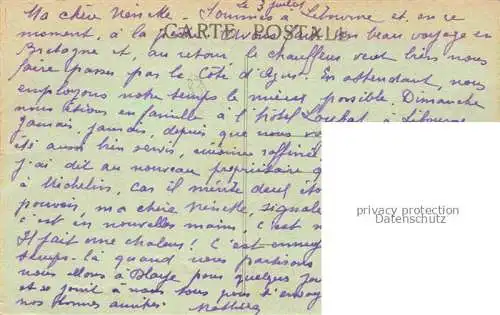 le 3 juillet
CARTE POSTALE
Ma chère Ninette - Sommes à Libourne et, en ce
moment, à la beau voyage en
Bretagne et, au retour le chauffeur veut bien nous
faire passer par la Côte d'Azur. En attendant, nous
employons notre temps le mieux possible. Dimanche
nous étions en famille à l'hôtel Loubat à Libourne
jamais, jamais, depuis que nous
été aussi bien servis, cuisine raffinée
j'ai dit au nouveau propriétaire q
à Michelin, car il mérite deux éto
pouvoir, ma chère Ninette, signale
c'est en nouvelles mains, c'est
Il fait une chaleur! C'est ennuy
temps-là quand nous partirons
nous allons à Blaye pour quelques jou
et se joint à nous tous pour t'envoy
nos bonnes amitiés.
privacy protection
Datenschutz